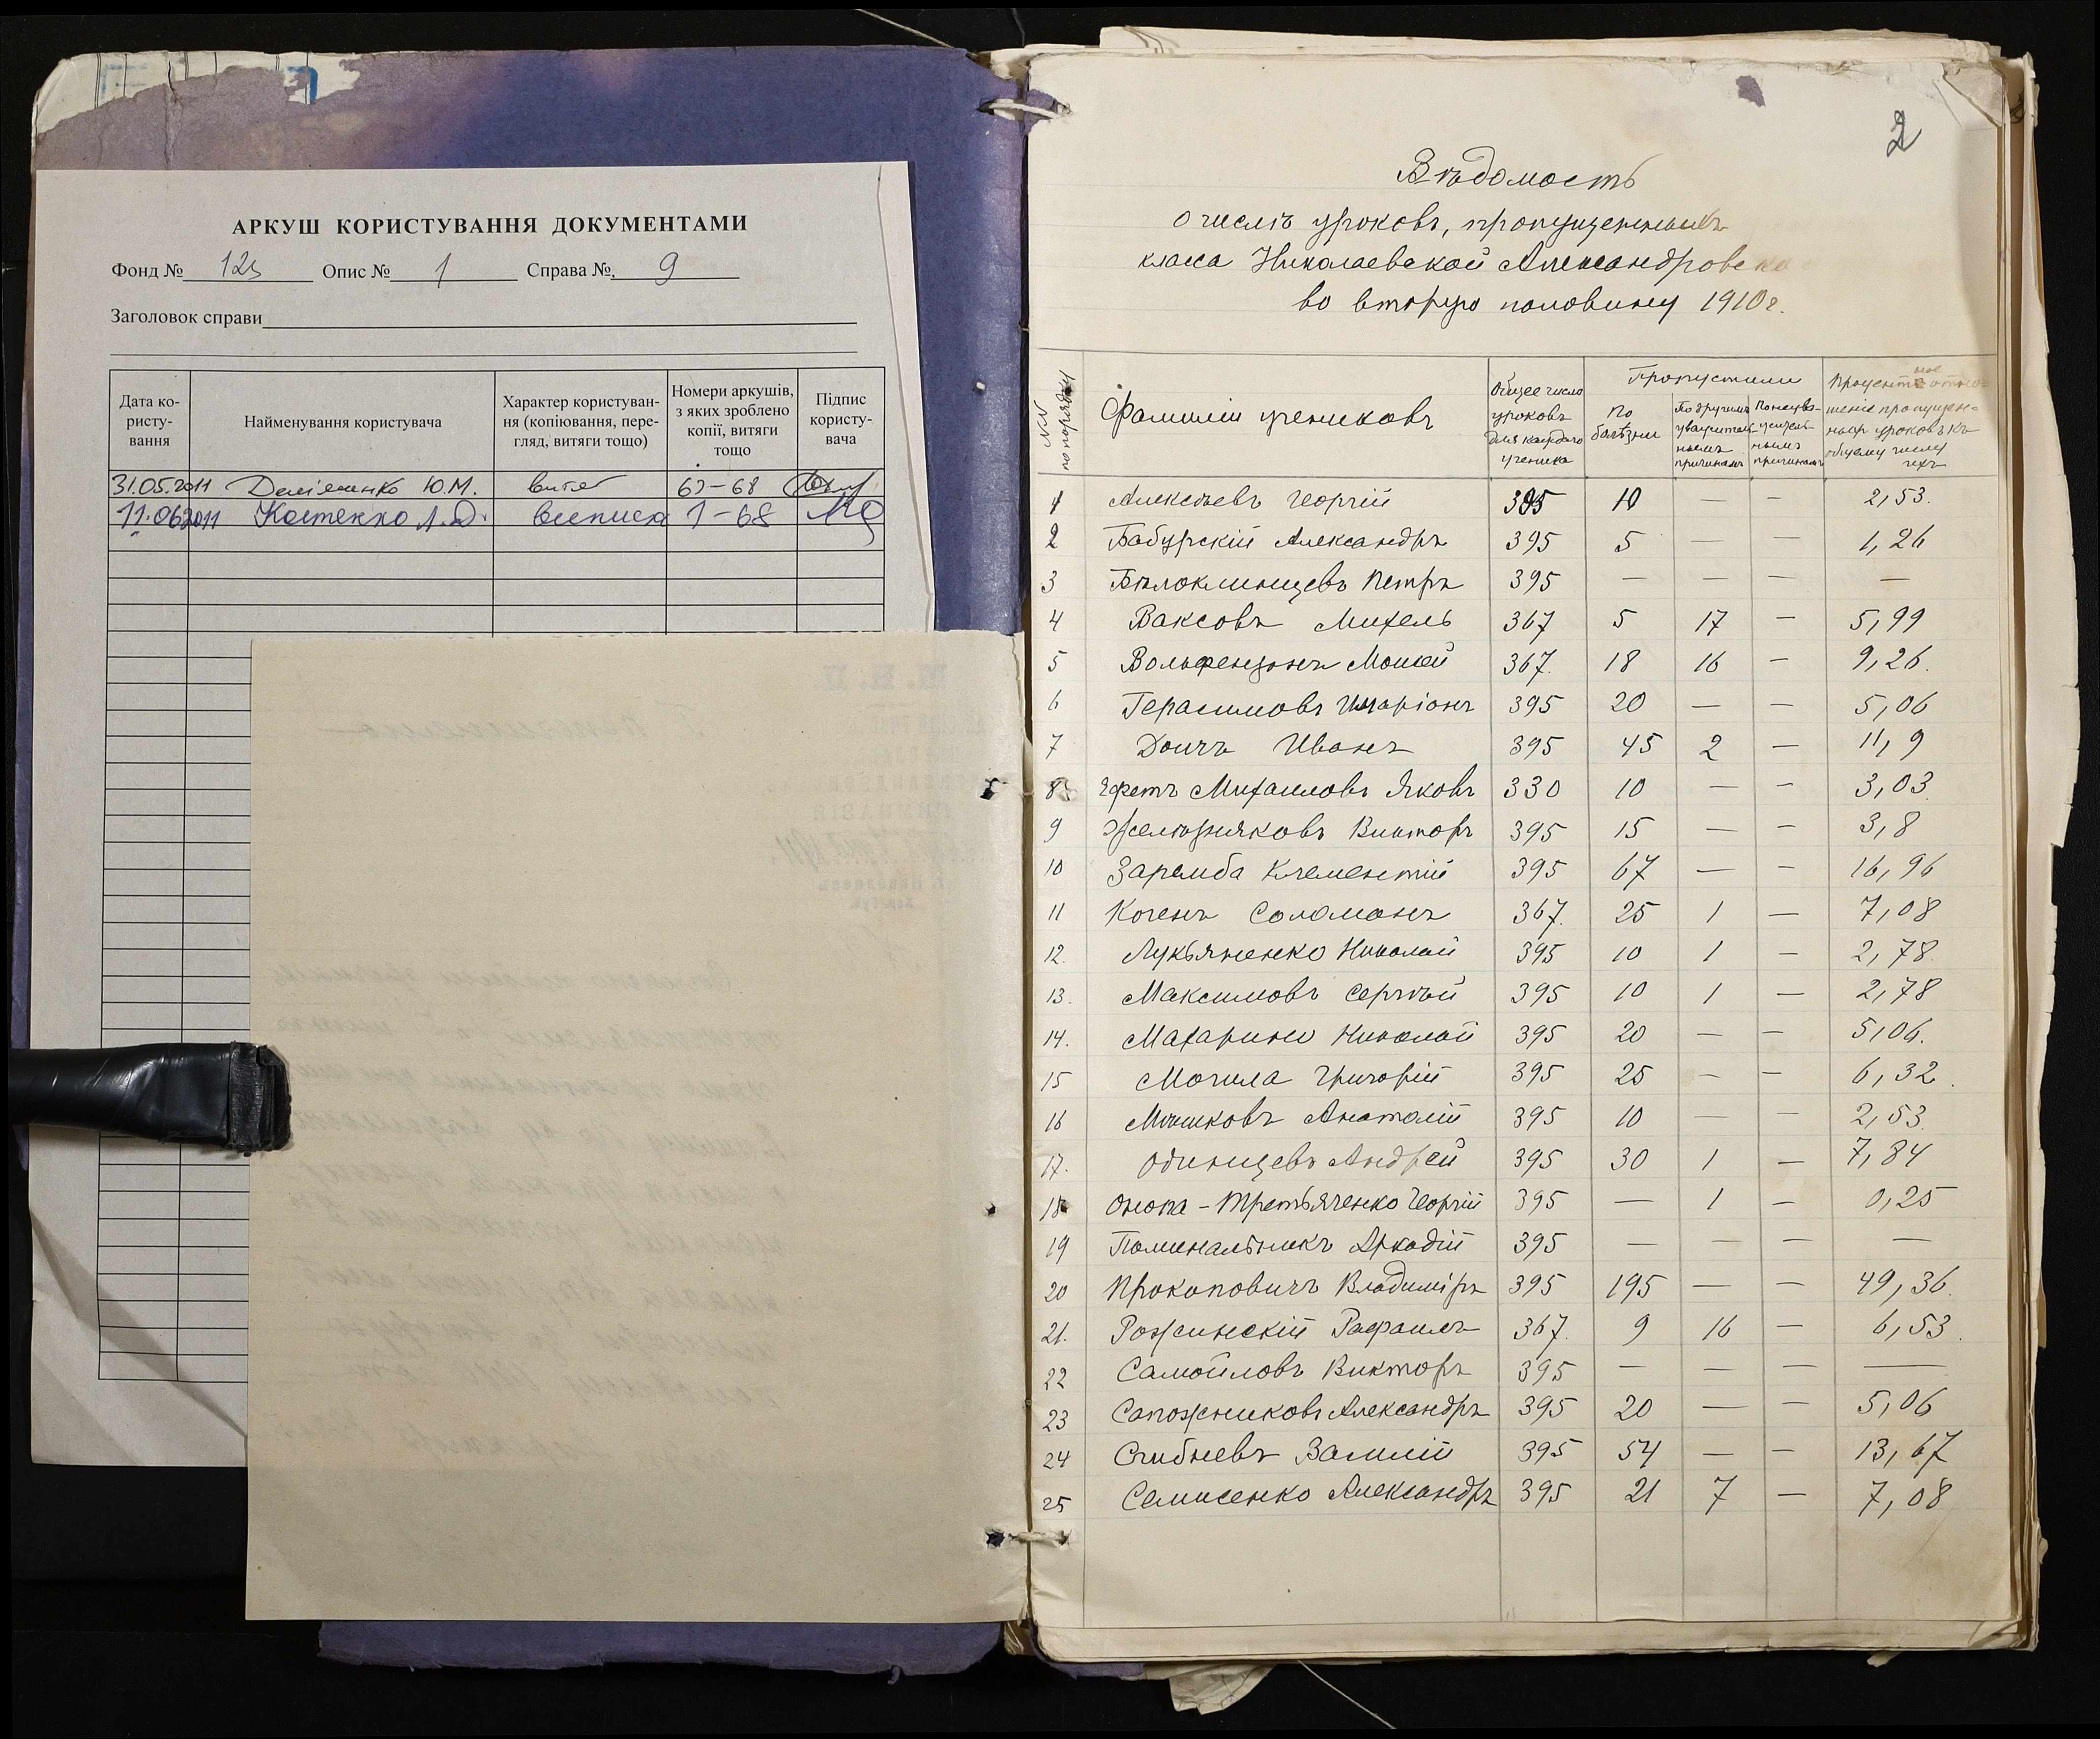 АРКУШ КОРИСТУВАННЯ ДОКУМЕНТАМИ
Фонд № 123 Опис № 1 Справа № 9
Заголовок справи
Дата ко-ристу-вання Найменування користувача Характер користуван-ня (копіювання, пере-гляд, витяги тощо) Номери аркушів, з яких зроблено копії, витяги тощо Підпис користу-вача
31.05.2011 Дем'яненко Ю.М. витяг 63-68
11.06.2011 Костенко Л.Д. виписка 1-68
2
Вѣдомость
о числѣ уроковъ, пропущенныхъ
класса Николаевской Александровско
во вторую половину 1910 г.
№№ по порядку Фамиліи учениковъ Общее число уроковъ для каждаго ученика Пропустили По болѣзни По другимъ уважитель-нымъ причинамъ По неува-житель-нымъ причинамъ Процентное отно-шеніе пропущен-ныхъ уроковъ къ общему числу ихъ
1 Алексѣевъ Георгій 395 10 — — 2,53.
2 Бабурскій Александръ 395 5 — — 1,26
3 Бѣлоклинцевъ Петръ 395 — — — —
4 Ваксовъ Михель 367 5 17 — 5,99
5 Вольфензонъ Моисей 367. 18 16 — 9,26.
6 Герасимовъ Иларіонъ 395 20 — — 5,06
7 Доичъ Иванъ 395 45 2 — 11,9
8 Эфетъ Михаиловъ Яковъ 330 10 — — 3,03
9 Желѣзняковъ Викторъ 395 15 — — 3,8
10 Заремба Климентій 395 67 — — 16,96
11 Когенъ Соломонъ 367. 25 1 — 7,08
12. Лукьяненко Николай 395 10 1 — 2,78.
13. Максимовъ Сергѣй 395 10 1 — 2,78
14. Махарино Николай 395 20 — — 5,06.
15 Могила Григорій 395 25 — — 6,32.
16 Мошковъ Анатолій 395 10 — — 2,53.
17. Одинцевъ Андрей 395 30 1 — 7,84
18 Онопа-Третьяченко Георгій 395 — 1 — 0,25
19 Поминальникъ Аркадій 395 — — — —
20 Прокоповичъ Владиміръ 395 195 — — 49,36.
21. Рожинскій Рафаилъ 367. 9 16 — 6,53.
22 Самойловъ Викторъ 395 — — — —
23 Сапожниковъ Александръ 395 20 — — 5,06
24 Сгибневъ Василій 395 54 — — 13,67
25 Семисенко Александръ 395 21 7 — 7,08